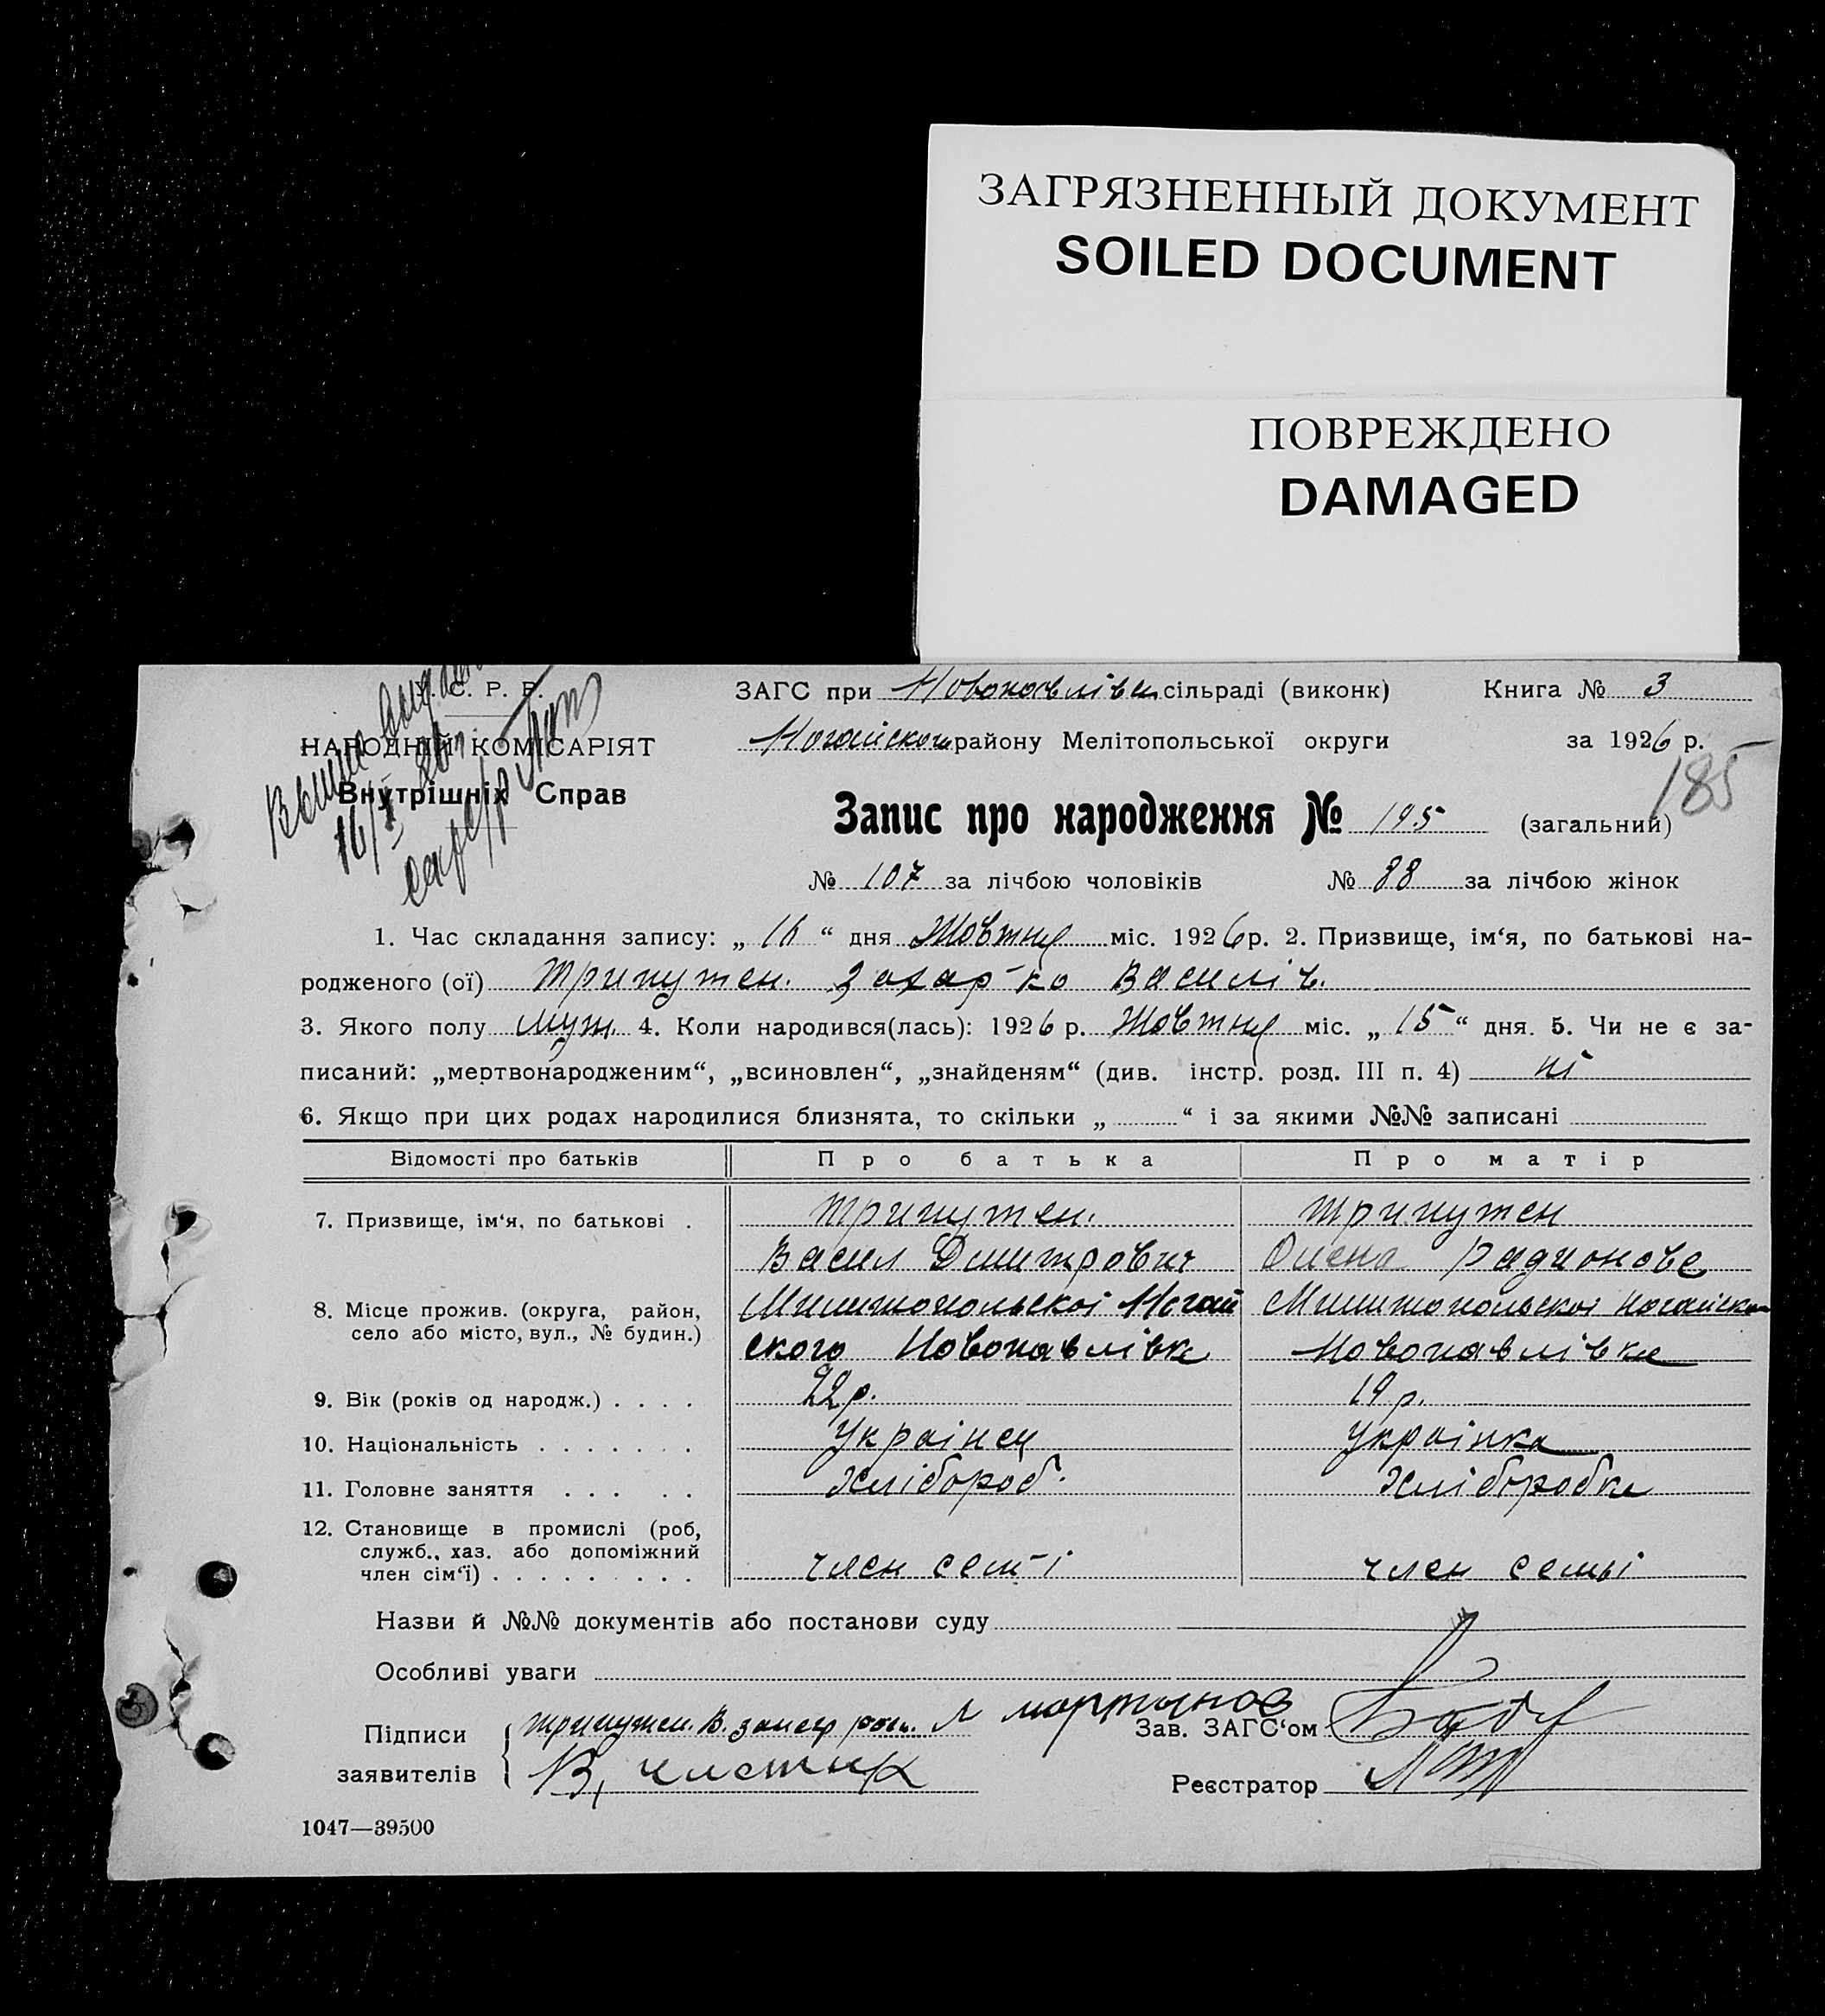 ЗАГРЯЗНЕННЫЙ ДОКУМЕНТ
SOILED DOCUMENT
ПОВРЕЖДЕНО
DAMAGED
С. Р. Р.
НАРОДНІЙ КОМІСАРІЯТ
Внутрішніх Справ
16/X
ЗАГС при Новопавлівки сільраді (виконк) Книга № 3
Ногайского району Мелітопольської округи за 1926 р.
185
Запис про народження № 195 (загальний)
№ 107 за лічбою чоловіків № 88 за лічбою жінок
1. Час складання запису: „ 16 “ дня Жовтня міс. 1926 р. 2. Призвище, ім‘я, по батькові на-
родженого (ої) Трипутен. Захар-ко Василів.
3. Якого полу муж. 4. Коли народився(лась): 1926 р. Жовтня міс. „ 15 “ дня. 5. Чи не є за-
писаний: „мертвонародженим“, „всиновлен“, „знайденям“ (див. інстр. розд. III п. 4) ні
6. Якщо при цих родах народилися близнята, то скільки „ “ і за якими №№ записані
Відомості про батьків Про батька Про матір
7. Призвище, ім‘я, по батькові . Трипутен. Трипутен
Васил Дмитрович Олена Радионове
8. Місце прожив. (округа, район, Милитопольскоі Ногай Милитопольскоі Ногайско
село або місто, вул., № будин.) ского Новопавлівка Новопавлівка
9. Вік (років од народж.) . . . . 22 р. 19 р.
10. Національність . . . . . . . Украінец Украінка
11. Головне заняття . . . . . Хлібороб. Хліборобка
12. Становище в промислі (роб,
служб., хаз. або допоміжний
член сім‘ї) . . . . . . . . . член сем-і член семьі
Назви й №№ документів або постанови суду
Особливі уваги
Підписи Трипутен. В. Л мартынов Зав. ЗАГС‘ом
заявителів В, Реєстратор
1047—39500